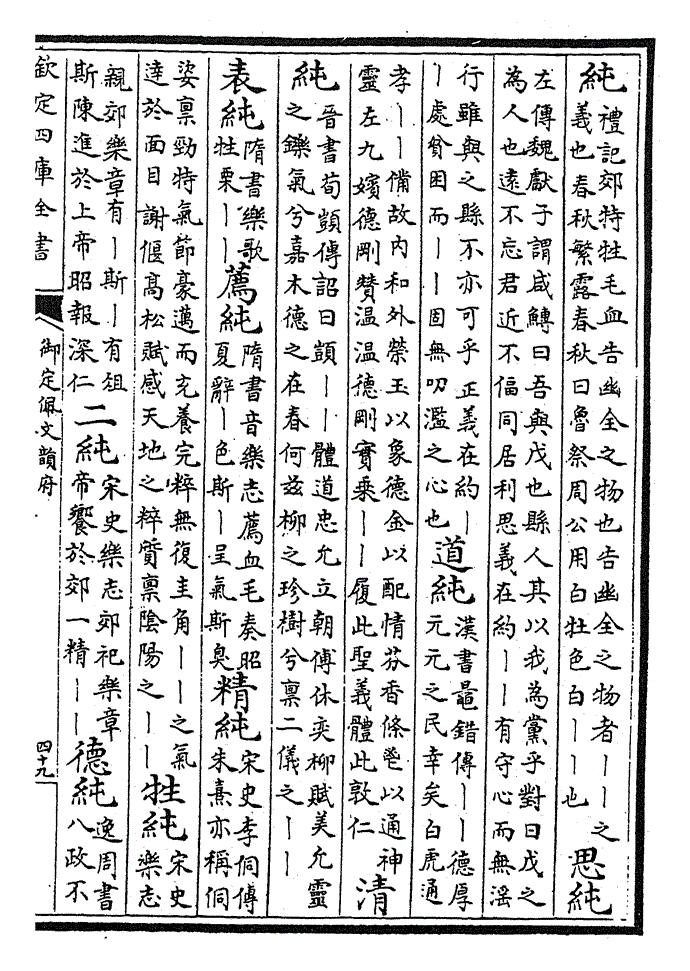 純禮記郊特牲毛血告幽全之物也告幽全之物者丨丨之
義也春秋繁露春秋曰魯祭周公用白牡色白丨丨也思純
左傳魏獻子謂成鱄曰吾與戊也縣人其以我為黨乎對曰戊之
為人也遠不忘君近不偪同居利思義在約丨丨有守心而無淫
行雖與之縣不亦可乎正義在約丨
丨處貧困而丨丨固無叨濫之心也道純漢書鼂錯傳丨丨德厚
元元之民幸矣白虎通
孝丨丨備故内和外榮玉以象德金以配情芬香條鬯以通神
靈左九嬪德剛贊温温德剛實乗丨丨履此聖義體此敦仁清
純晉書荀顗傳詔曰顗丨丨體道忠允立朝傅休奕柳賦美允靈
之鑠氣兮嘉木德之在春何兹柳之珍樹兮禀二儀之丨丨
表純隋書樂歌
牲栗丨丨薦純隋書音樂志薦血毛奏昭
夏辭丨色斯丨呈氣斯臭精純宋史李侗傳
朱熹亦稱侗
姿禀勁特氣節豪邁而充養完粹無復圭角丨丨之氣
達於面目謝偃高松賦感天地之粹質禀陰陽之丨丨牲純宋史
樂志
親郊樂章有丨斯丨有俎
斯陳進於上帝昭報深仁二純宋史樂志郊祀樂章
帝饗於郊一精丨丨德純逸周書
八政不
欽定四庫全書
御定佩文韻府
四十九